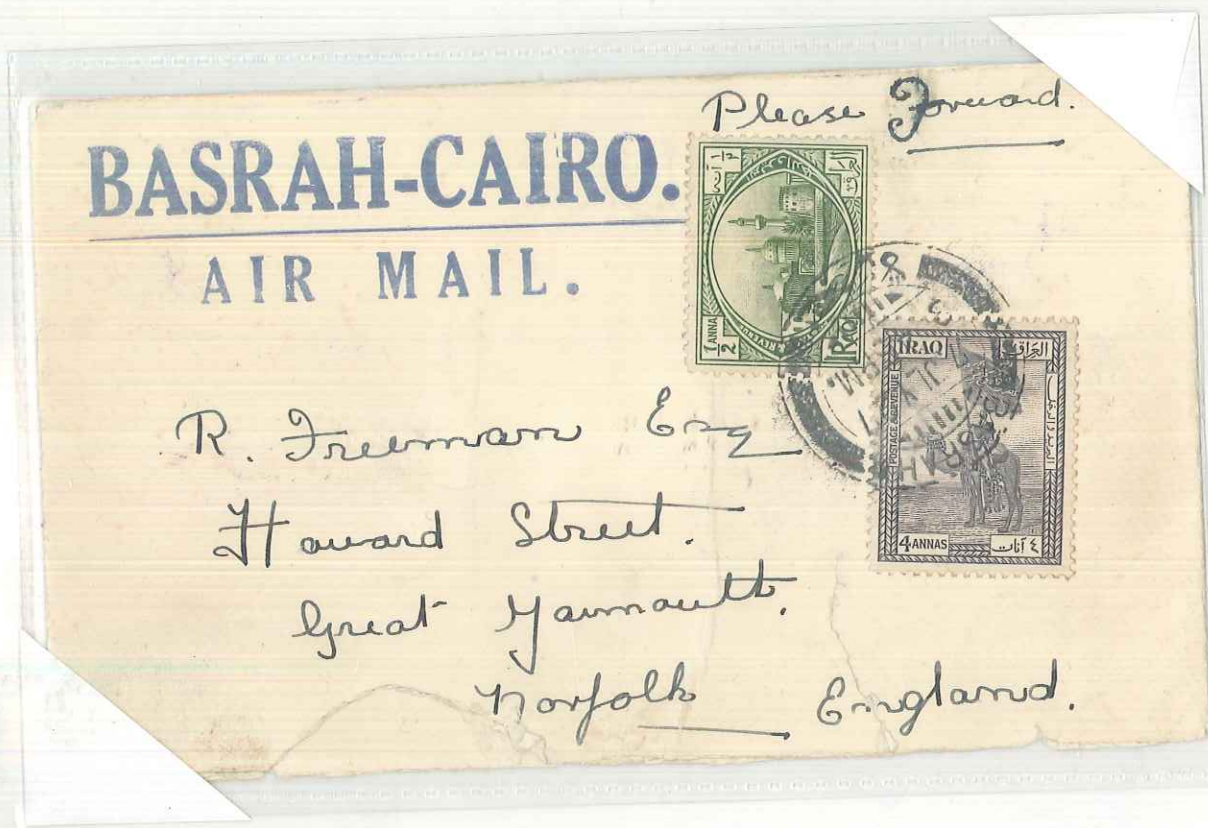 Please Forward.
BASRAH-CAIRO.
AIR MAIL.
1/2 ANNA
IRAQ
IRAQ العراق
POSTAGE & REVENUE
4 ANNAS ٤ آنات
R. Freeman Esq
Howard Street.
Great Yarmouth.
Norfolk England.